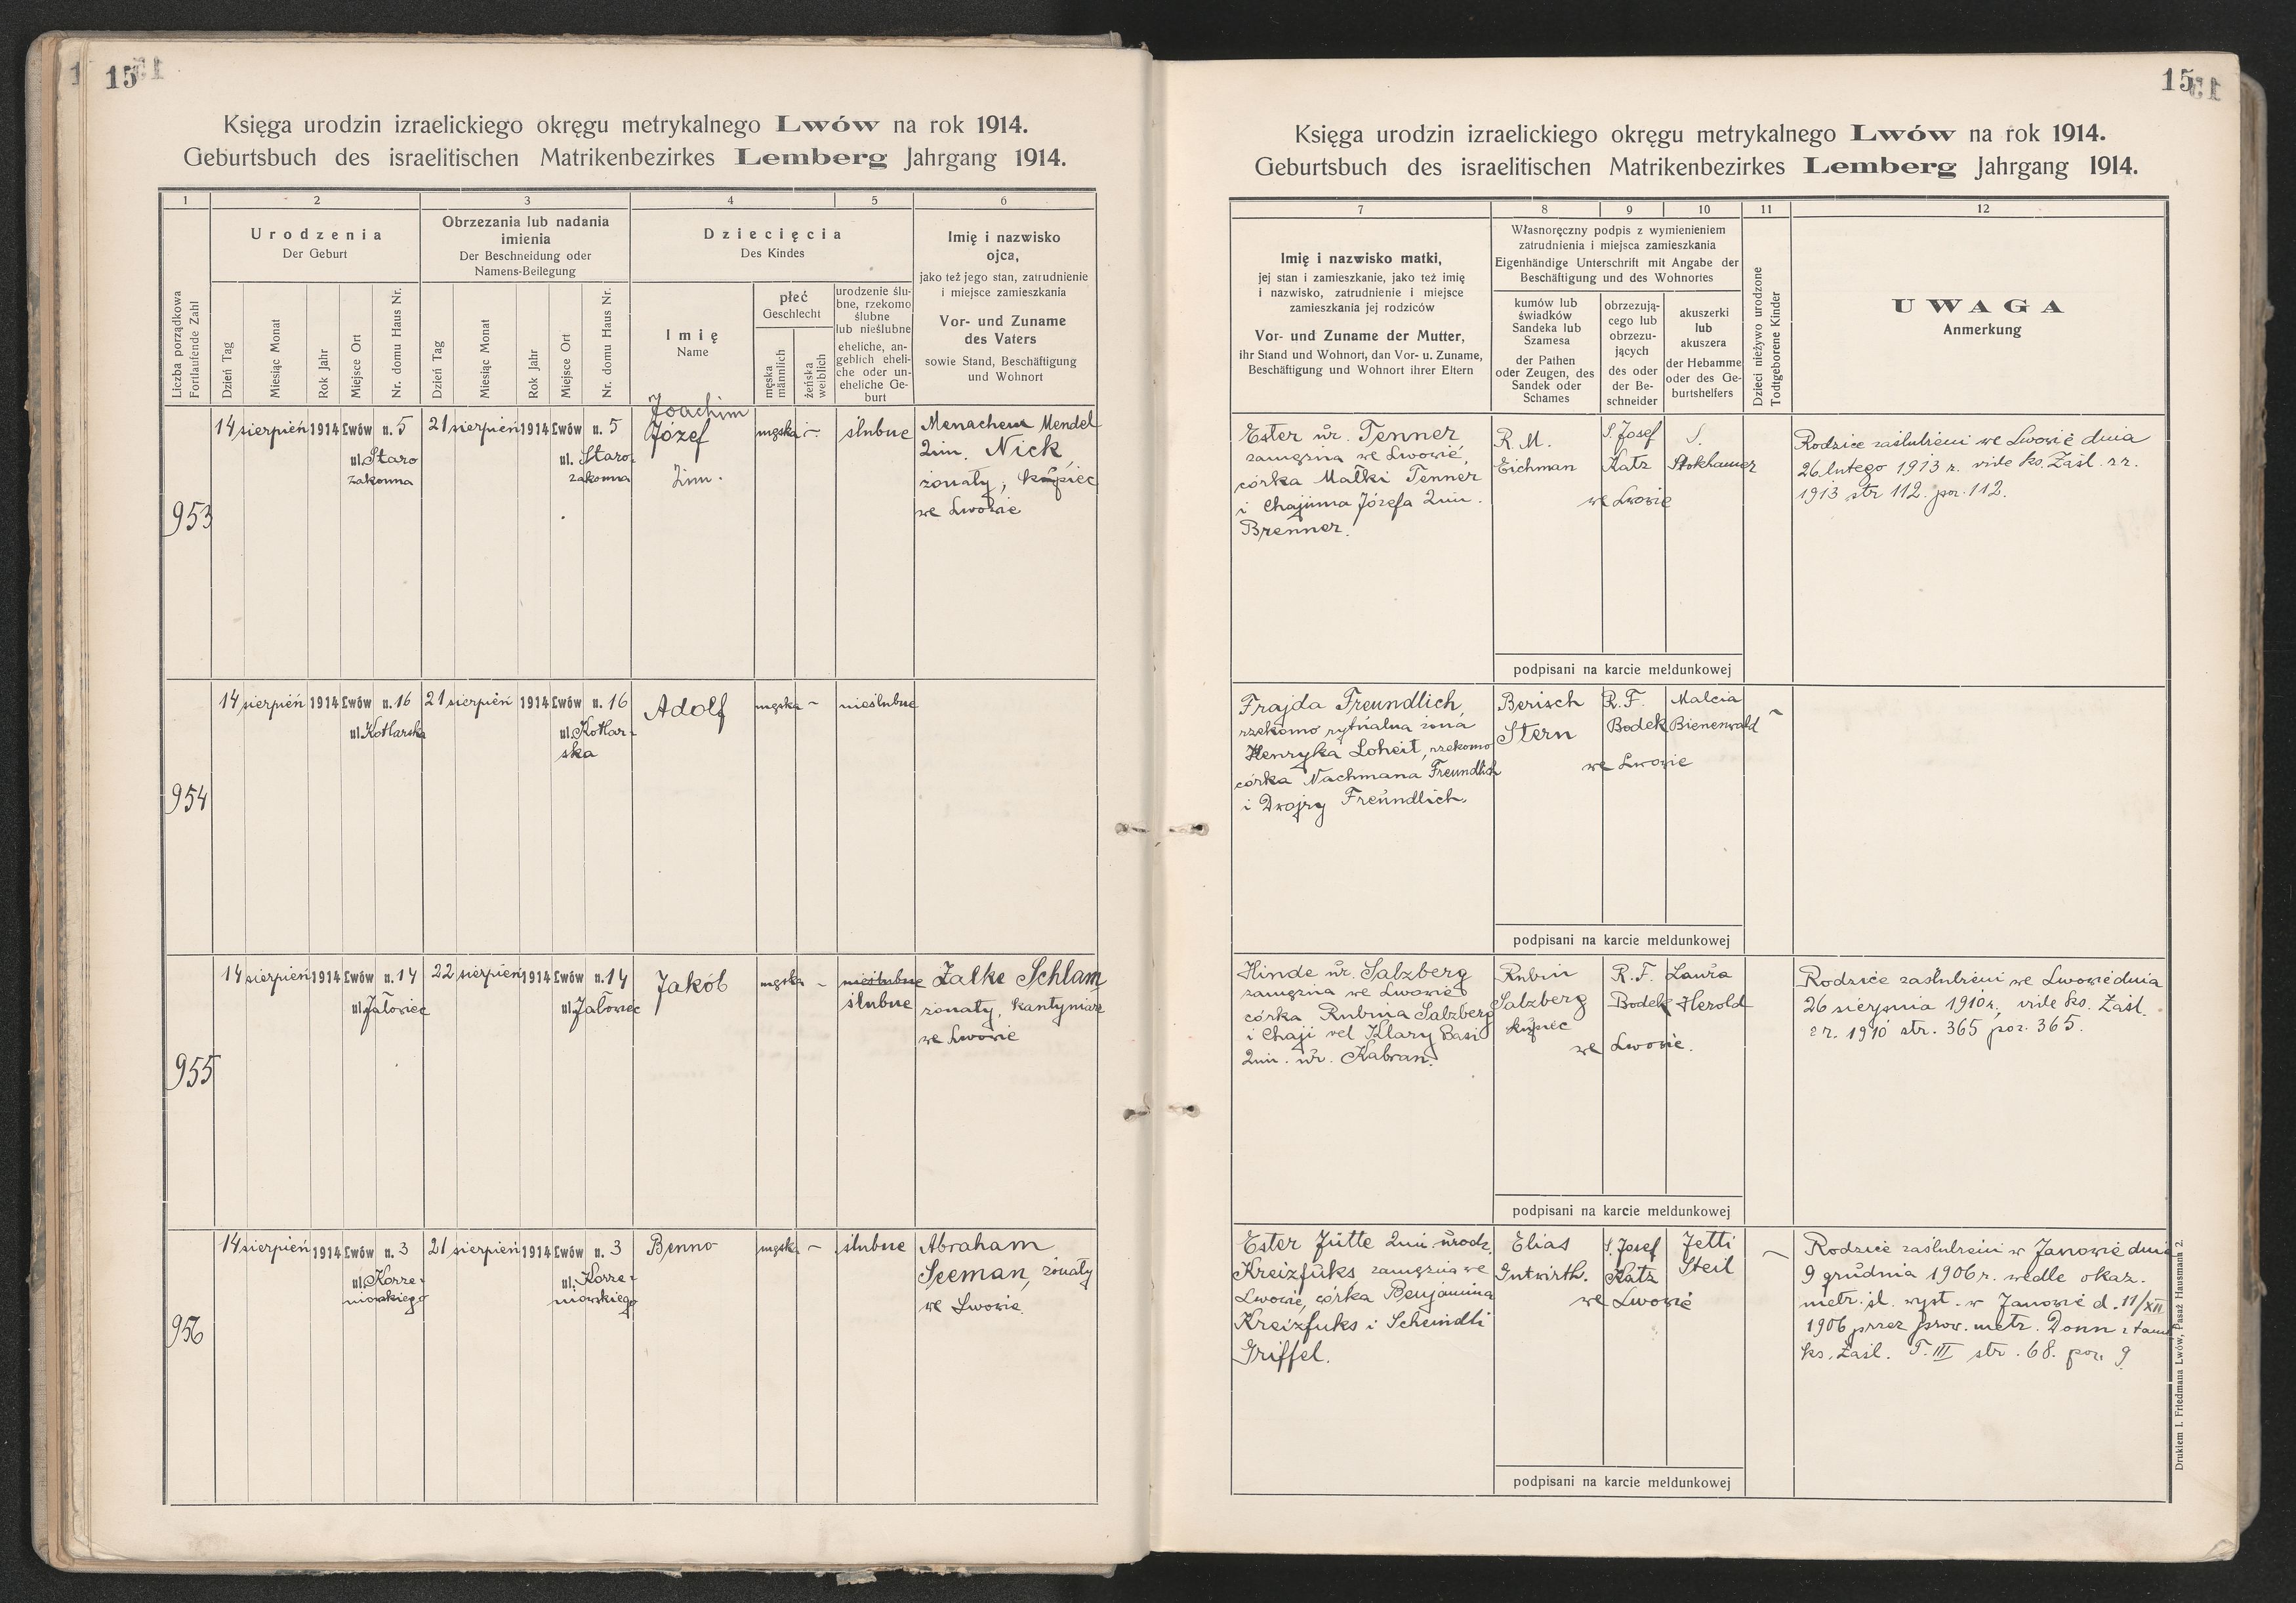 15
Księga urodzin izraelickiego okręgu metrykalnego Lwów na rok 1914.
Geburtsbuch des israelitischen Matrikenbezirkes Lemberg Jahrgang 1914.
1 2 3 4 5 6
Liczba porządkowa
Fortlaufende Zahl
Urodzenia
Der Geburt
Dzień Tag
Miesiąc Monat
Rok Jahr
Miejsce Ort
Nr. domu Haus Nr.
Obrzezania lub nadania
imienia
Der Beschneidung oder
Namens-Beilegung
Dzień Tag
Miesiąc Monat
Rok Jahr
Miejsce Ort
Nr. domu Haus Nr.
Dziecięcia
Des Kindes
Imię
Name
płeć
Geschlecht
męska
männlich
żeńska
weiblich
urodzenie ślu-
bne, rzekomo
ślubne
lub nieślubne
eheliche, an-
geblich eheli-
che oder un-
eheliche Ge-
burt
Imię i nazwisko
ojca,
jako też jego stan, zatrudnienie
i miejsce zamieszkania
Vor- und Zuname
des Vaters
sowie Stand, Beschäftigung
und Wohnort
953
14 sierpień 1914 Lwów n. 5
ul. Staro
zakonna
21 sierpień 1914 Lwów n. 5
ul. Staro
zakonna
Joachim
Józef
2im.
męska –
ślubne
Menachem Mendel
2im. Nick
żonaty, kupiec
we Lwowie
954
14 sierpień 1914 Lwów n. 16
ul. Kotlarska
21 sierpień 1914 Lwów n. 16
ul. Kotlar-
ska
Adolf
męska –
nieślubne
955
14 sierpień 1914 Lwów n. 14
ul. Jałowiec
22 sierpień 1914 Lwów n. 14
ul. Jałowiec
Jakób
męska –
nieślubne
ślubne
Zalke Schlam
żonaty, kantyniarz
we Lwowie
956
14 sierpień 1914 Lwów n. 3
ul. Korze-
niowskiego
21 sierpień 1914 Lwów n. 3
ul. Korze-
niowskiego
Benno
męska –
ślubne
Abraham
Seeman, żonaty
we Lwowie
15
Księga urodzin izraelickiego okręgu metrykalnego Lwów na rok 1914.
Geburtsbuch des israelitischen Matrikenbezirkes Lemberg Jahrgang 1914.
7 8 9 10 11 12
Imię i nazwisko matki,
jej stan i zamieszkanie, jako też imię
i nazwisko, zatrudnienie i miejsce
zamieszkania jej rodziców
Vor- und Zuname der Mutter,
ihr Stand und Wohnort, dan Vor- u. Zuname,
Beschäftigung und Wohnort ihrer Eltern
Własnoręczny podpis z wymienieniem
zatrudnienia i miejsca zamieszkania
Eigenhändige Unterschrift mit Angabe der
Beschäftigung und des Wohnortes
kumów lub
świadków
Sandeka lub
Szamesa
der Pathen
oder Zeugen, des
Sandek oder
Schames
obrzezują-
cego lub
obrzezu-
jących
des oder
der Be-
schneider
akuszerki
lub
akuszera
der Hebamme
oder des Ge-
burtshelfers
Dzieci nieżywo urodzone
Todtgeborene Kinder
UWAGA
Anmerkung
Ester ur. Tenner
zamężna we Lwowie,
córka Małki Tenner
i Chajima Józefa 2im.
Brenner.
R. M.
Eichman
S. Josef
Katz
S.
Stokhamer
we Lwowie
Rodzice zaślubieni we Lwowie dnia
26. lutego 1913 r. vide ks. Zaśl. z r.
1913 str 112. poz. 112.
podpisani na karcie meldunkowej
Frajda Freundlich,
rzekomo rytualna żona
Henryka Loheit, rzekomo
córka Nachmana Freundlich
i Dwojry Freundlich.
Berisch
Stern
R. F.
Bodek
Malcia
Bienenwald
we Lwowie
–
podpisani na karcie meldunkowej
Hinde ur. Salzberg
zamężna we Lwowie
córka Rubina Salzberg
i Chaji vel Klary Basi
2im. ur. Kabran.
Rubin
Salzberg
kupiec
R. F.
Bodek
Laura
Herold
we Lwowie.
Rodzice zaślubieni we Lwowie dnia
26 sierpnia 1910 r., vide ks. Zaśl.
z r. 1910 str. 365 poz. 365.
podpisani na karcie meldunkowej
Ester Jütte 2im. urodz.
Kreizfuks, zamężna we
Lwowie, córka Benjamina
Kreizfuks i Scheindli
Griffel.
Elias
Gutwirth.
S. Josef
Katz
Jetti
Steil
we Lwowie
–
Rodzice zaślubieni w Janowie dnia
9 grudnia 1906 r. wedle okaz.
metr. śl. wyst. w Janowie d. 11/XII
1906 przez prow. metr. Donn z tamt.
ks. Zaśl. T. III str. 68. poz. 9
podpisani na karcie meldunkowej
Drukiem I. Friedmana Lwów, Pasaż Hausmana 2.